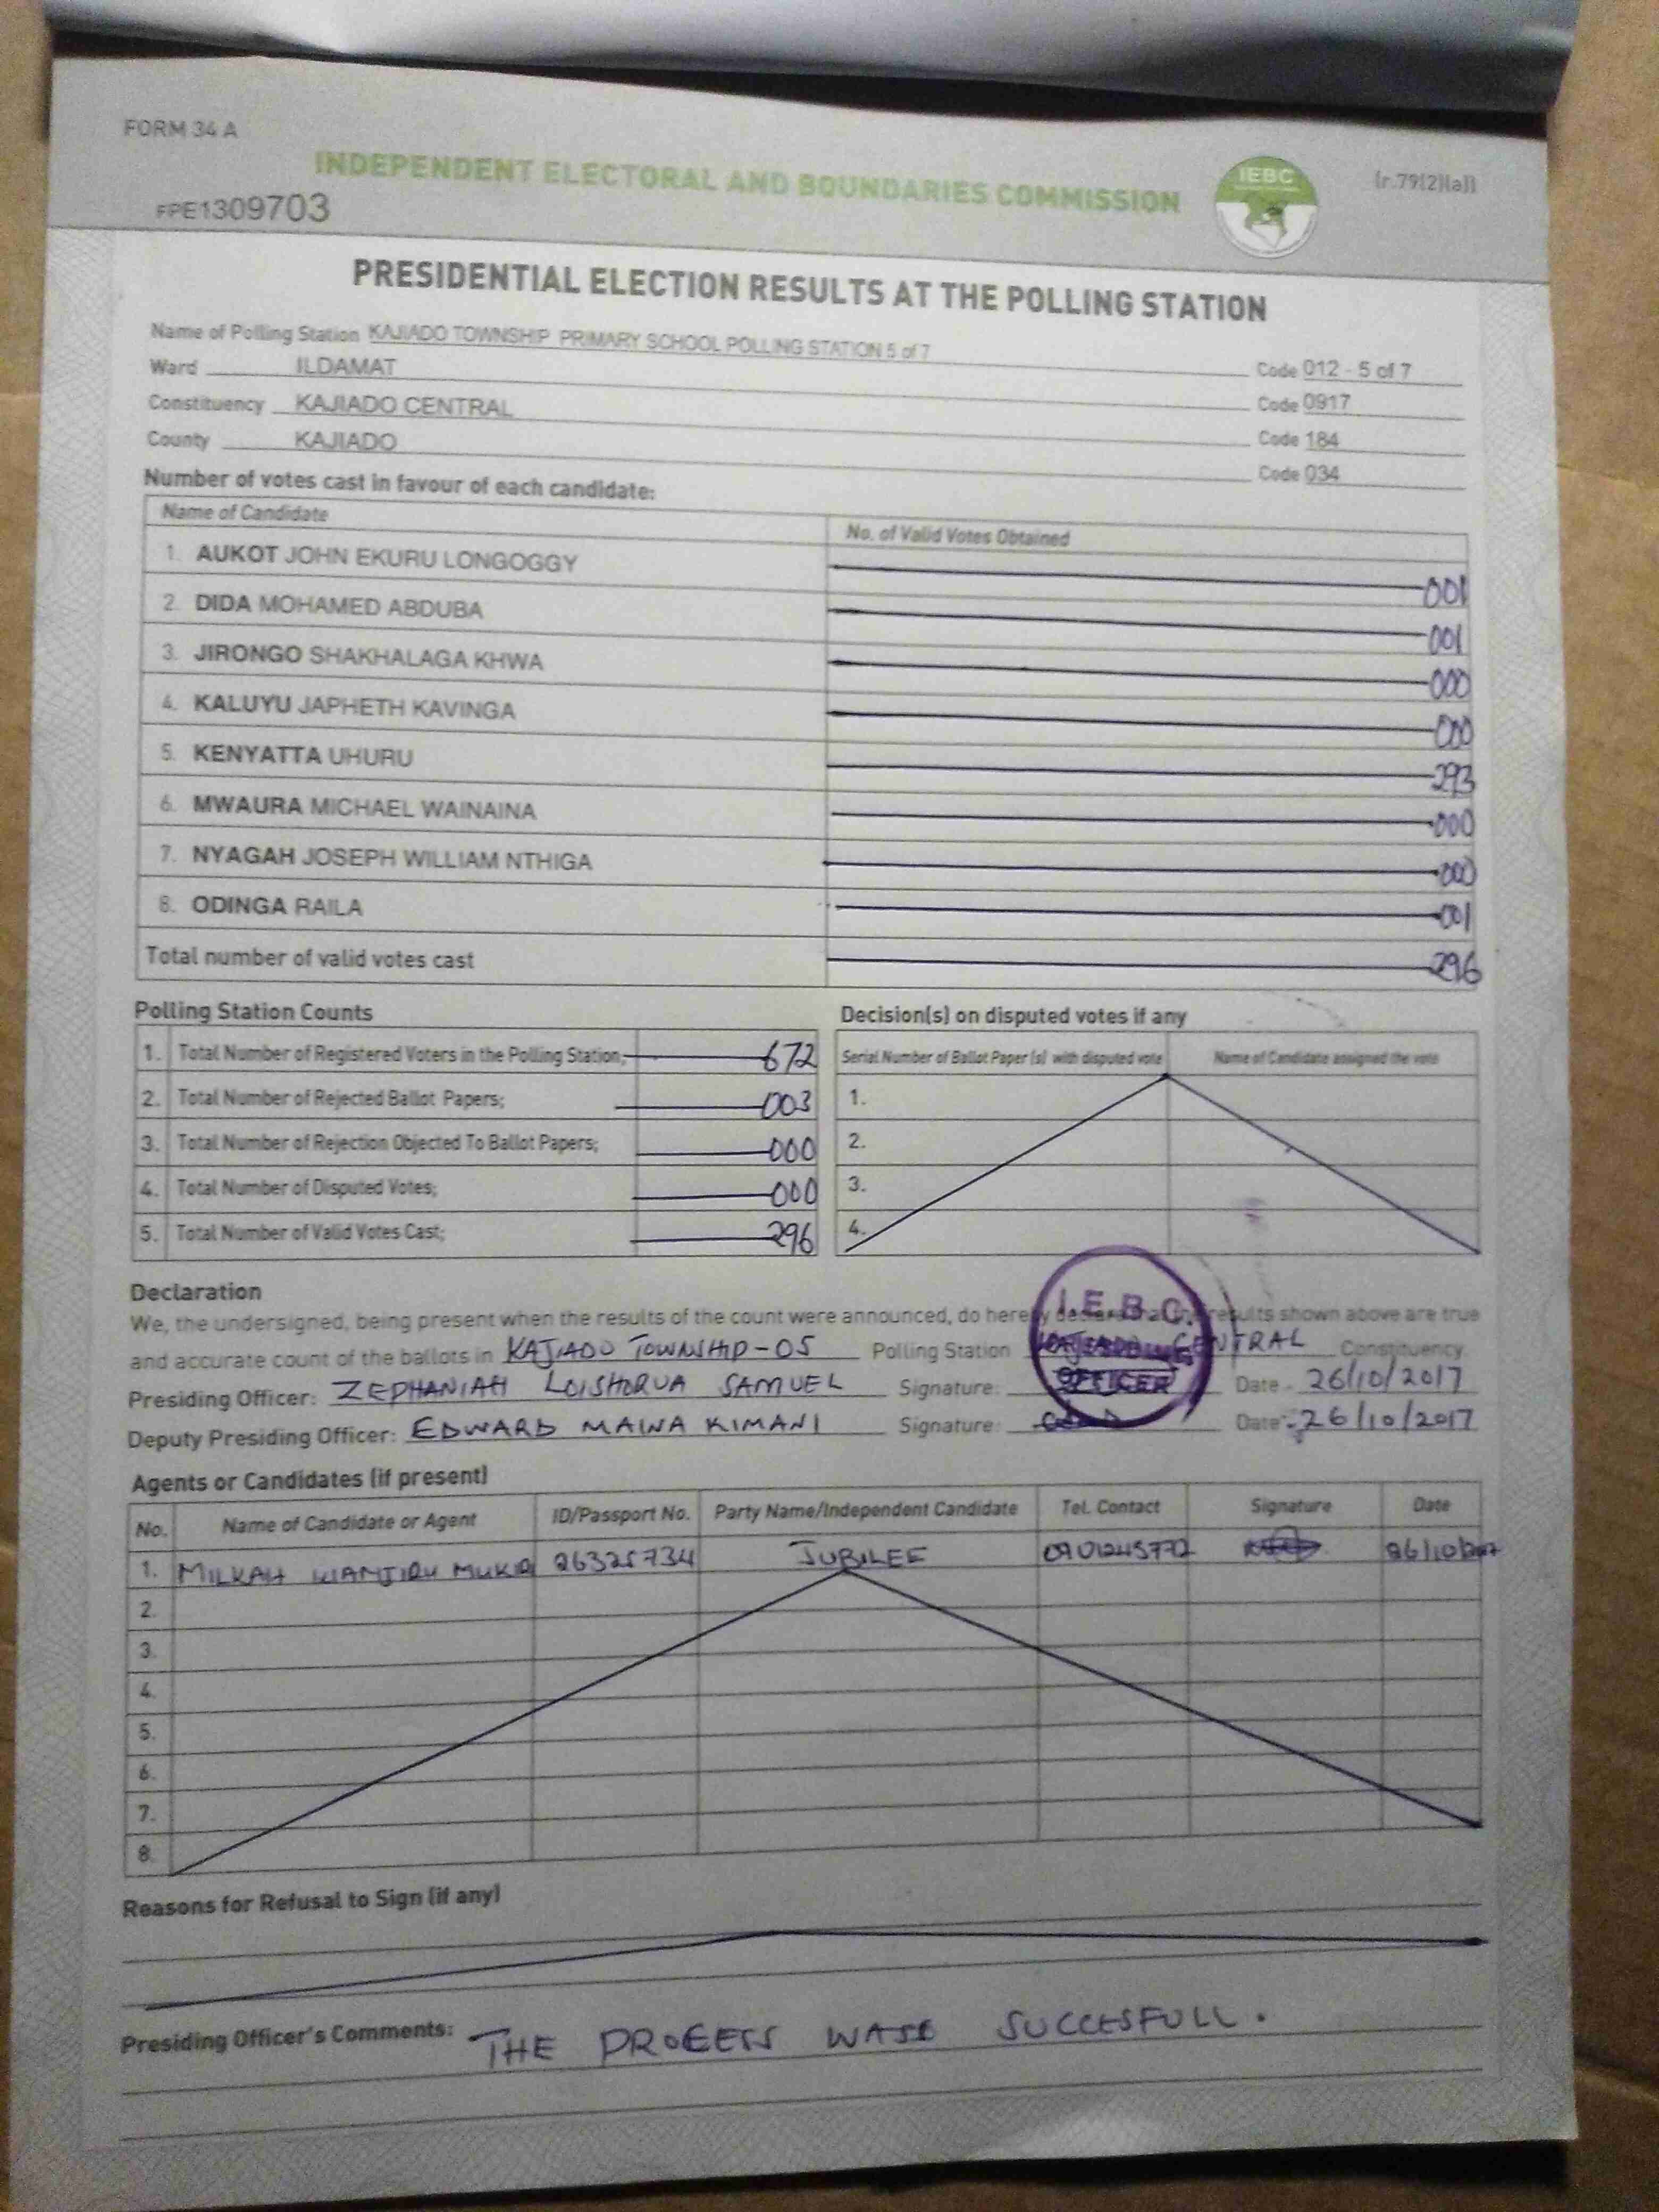 FORM 34 A
INDEPENDENT ELECTORAL AND BOUNDARIES COMMISSION
IEBC
(r.79(2)(a))
FPE1309703
PRESIDENTIAL ELECTION RESULTS AT THE POLLING STATION
Name of Polling Station KAJIADO TOWNSHIP PRIMARY SCHOOL POLLING STATION 5 of 7 Code 012 - 5 of 7
Ward ILDAMAT Code 0917
Constituency KAJIADO CENTRAL Code 184
County KAJIADO Code 034
Number of votes cast in favour of each candidate:
Name of Candidate No. of Valid Votes Obtained
1. AUKOT JOHN EKURU LONGOGGY 001
2. DIDA MOHAMED ABDUBA 001
3. JIRONGO SHAKHALAGA KHWA 000
4. KALUYU JAPHETH KAVINGA 000
5. KENYATTA UHURU 293
6. MWAURA MICHAEL WAINAINA 000
7. NYAGAH JOSEPH WILLIAM NTHIGA 000
8. ODINGA RAILA 001
Total number of valid votes cast 296
Polling Station Counts
1. Total Number of Registered Voters in the Polling Station; 672
2. Total Number of Rejected Ballot Papers; 003
3. Total Number of Rejection Objected To Ballot Papers; 000
4. Total Number of Disputed Votes; 000
5. Total Number of Valid Votes Cast; 296
Decision(s) on disputed votes if any
Serial Number of Ballot Paper (s) with disputed vote Name of Candidate assigned the vote
1.
2.
3.
4.
Declaration
We, the undersigned, being present when the results of the count were announced, do hereby declare that the results shown above are true
and accurate count of the ballots in KAJIADO TOWNSHIP-05 Polling Station KAJIADO CENTRAL Constituency.
I.E.B.C.
OFFICER
Presiding Officer: ZEPHANIAH LOISHORUA SAMUEL Signature: Date 26/10/2017
Deputy Presiding Officer: EDWARD MAINA KIMANI Signature: Date 26/10/2017
Agents or Candidates (if present)
No. Name of Candidate or Agent ID/Passport No. Party Name/Independent Candidate Tel. Contact Signature Date
1. MILKAH WANJIRU 26325734 JUBILEE 26/10/2017
2.
3.
4.
5.
6.
7.
8.
Reasons for Refusal to Sign (if any)
Presiding Officer's Comments: THE PROCESS SUCCESFULL.